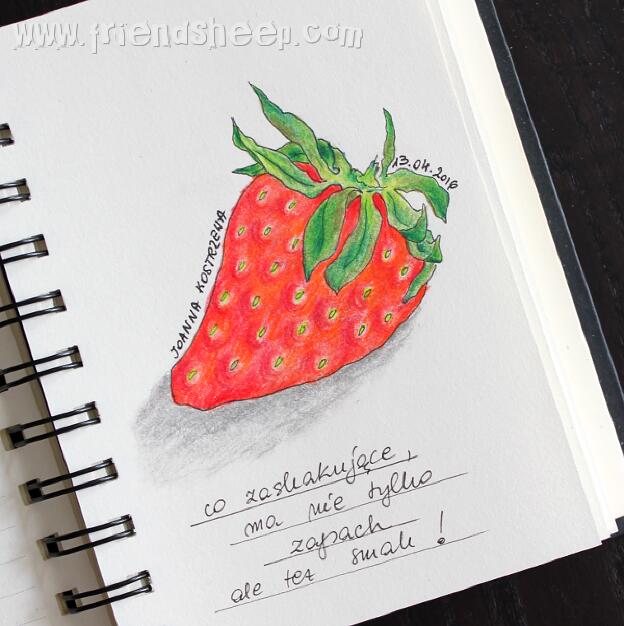 www.friendsheep.com
13.04.2016
JOANNA KOSTRZEWA
co zaskakujące,
ma nie tylko
zapach
ale też smak!